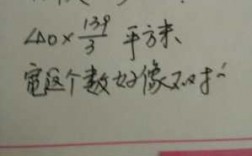 40×139/3 平方米、
宽这个数好像不对